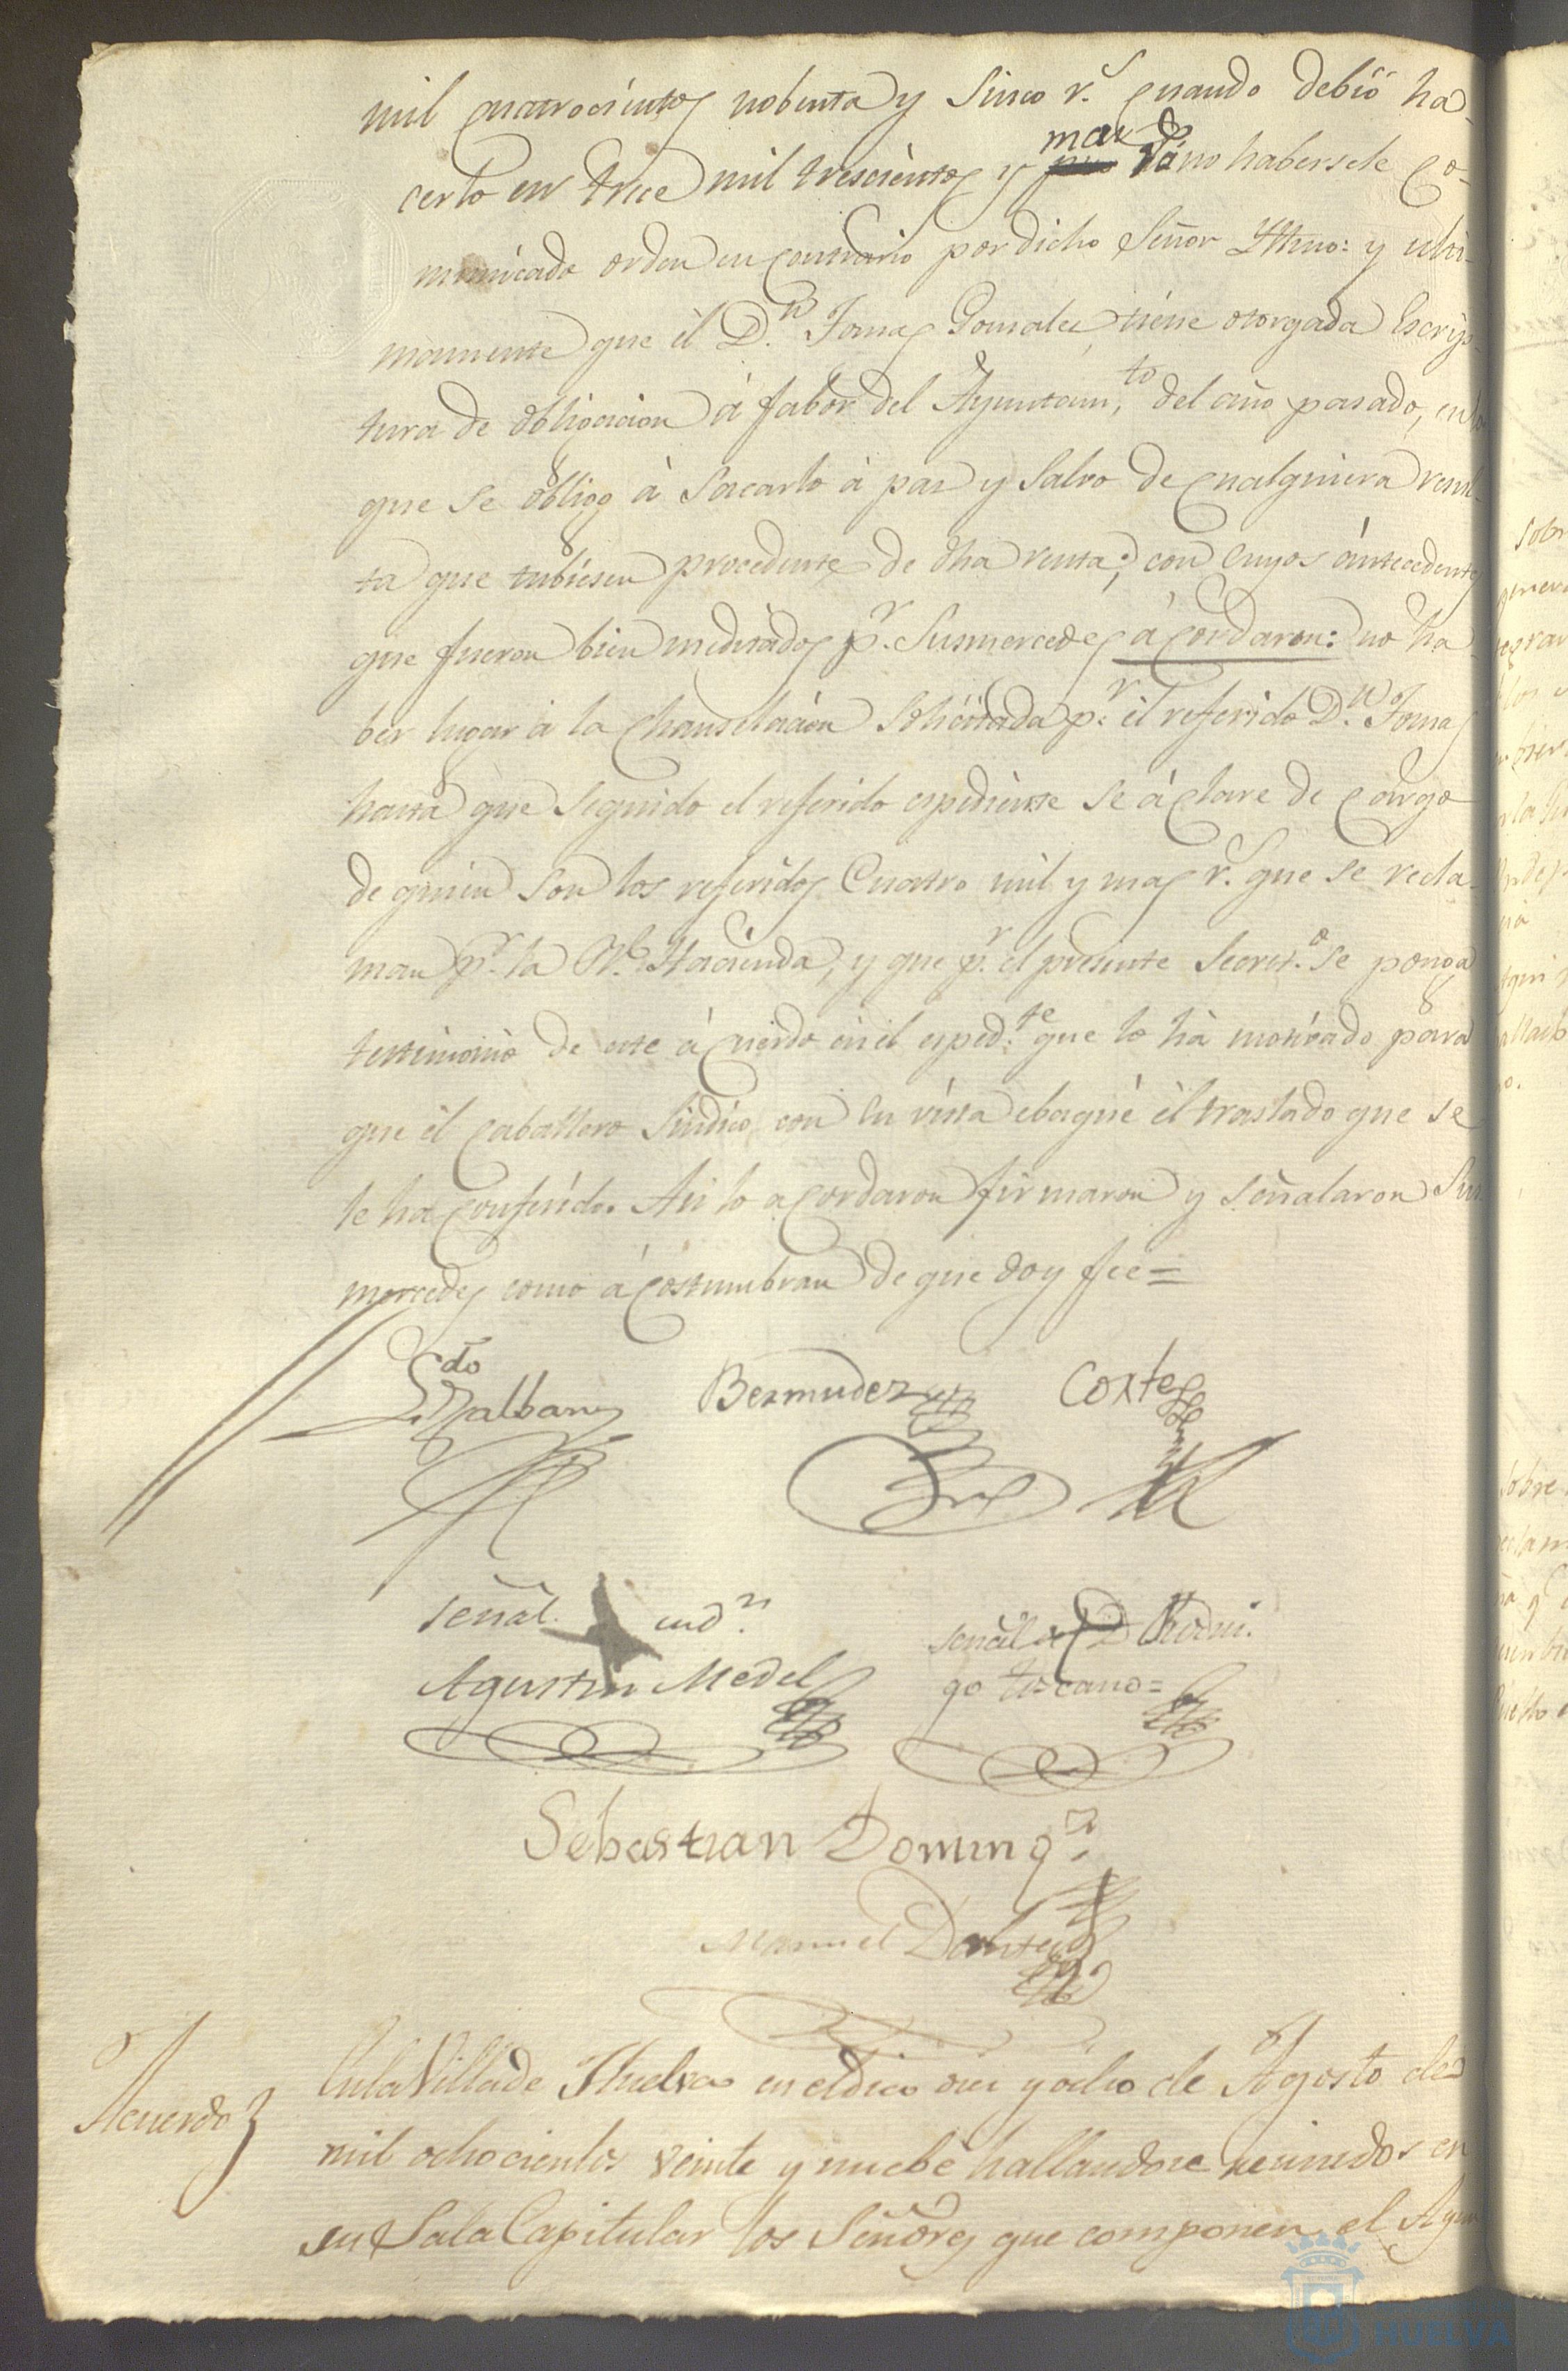 mil quatrocientos nobenta y Sinco r.s quando debió ha-
cerlo en trece mil trescientos y mas r.s no habersele co-
municado orden en contrario por dicho Señor Ytno: y ulti-
mamente que él D.n Tomas Gonzales, tiene otorgada Escrip-
tura de obligacion á fabor del Ayuntam.to del año pasado, en la
que se obligó á Sacarlo á paz y Salvo de qualquiera resul-
ta que tubiesen procedente de dha renta; con cuyos ántecedentes
que fueron bien meditados p.r Susmercedes ácordaron: no ha-
ber lugar á la Chanselacion Solicitada p.r el referido D.n Tomas
hasta que seguido el referido espediente se áclare de cargo
de quien son los referidos Cuatro mil y mas r.s que se recla-
man p.r la R.l Hacienda, y que p.r el presente Secret.o se ponga
testimonio de este ácuerdo en el esped.te que lo há motivado para
que él caballero Sindico con su vista ebaqué él traslado que se
le ha conferido. Asi lo acordaron firmaron y señalaron Sus
mercedes como ácostumbran de que doy fee=
Lcdo
Balbany
Bermudez
Cortes
señal. and.n
Agustin Medel
señal de D Rodri.
go toscano=
Sebastian Doming.z
Manuel
Acuerdo
En la Villa de Huelva en el dia diez y ocho de Agosto de
mil ochocientos veinte y nuebe hallandose reunidos en
su Sala Capitular los Señores que componen el Ayun
HUELVA